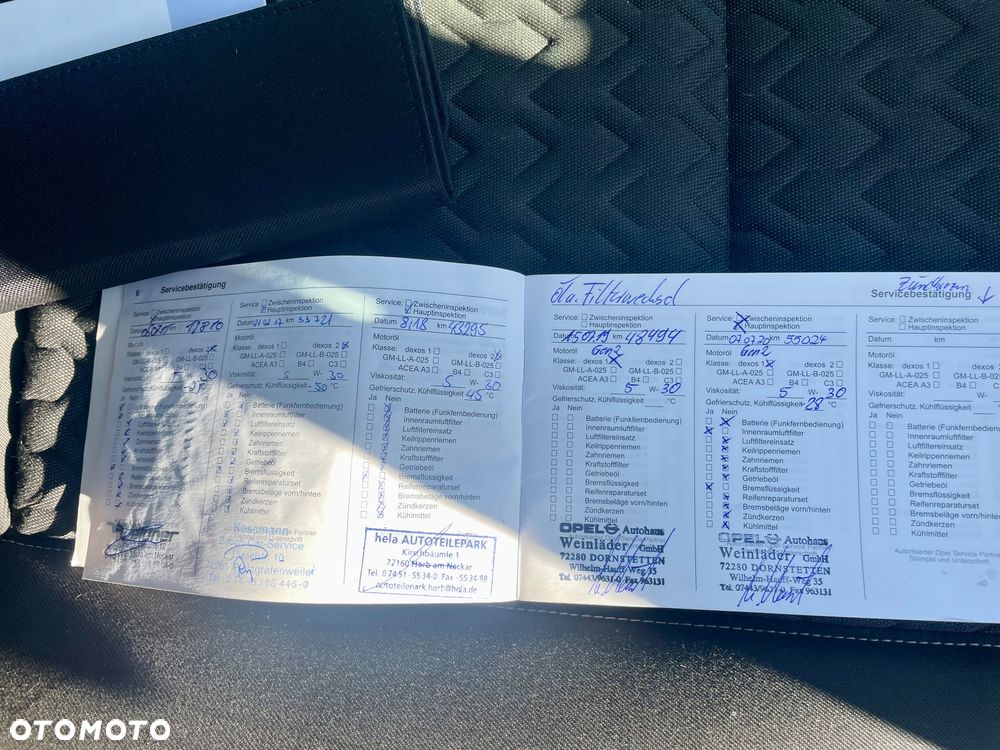 6
Servicebestätigung
Service: Zwischeninspektion
Hauptinspektion
Datum km 12810
Motoröl
Klasse: dexos 1 dexos 2
GM-LL-A-025 GM-LL-B-025
ACEA A3 B4 C3
Viskosität:
Ja Nein
Service: Zwischeninspektion
Hauptinspektion
Datum km 33721
Motoröl
Klasse: dexos 1 dexos 2
GM-LL-A-025 GM-LL-B-025
ACEA A3 B4 C3
Viskosität: 5 W- 30
Gefrierschutz, Kühlflüssigkeit -50 °C
Ja Nein
Batterie (Funkfernbedienung)
Innenraumluftfilter
Luftfiltereinsatz
Keilrippenriemen
Zahnriemen
Kraftstofffilter
Getriebeöl
Bremsflüssigkeit
Reifenreparaturset
Bremsbeläge vorn/hinten
Zündkerzen
Kühlmittel
Service: Zwischeninspektion
Hauptinspektion
Datum 8/18 km 43295
Motoröl
Klasse: dexos 1 dexos 2
GM-LL-A-025 GM-LL-B-025
ACEA A3 B4 C3
Viskosität: 5 W- 30
Gefrierschutz, Kühlflüssigkeit 45 °C
Ja Nein
Batterie (Funkfernbedienung)
Innenraumluftfilter
Luftfiltereinsatz
Keilrippenriemen
Zahnriemen
Kraftstofffilter
Getriebeöl
Bremsflüssigkeit
Reifenreparaturset
Bremsbeläge vorn/hinten
Zündkerzen
Kühlmittel
hela AUTOTEILEPARK
Kirschbäumle 1
72160 Horb am Neckar
Tel. 0 74 51 - 55 34-0 Fax -55 34 98
autoteilepark.horb@hela.de
Öl u. Filterwechsel
Service: Zwischeninspektion
Hauptinspektion
Datum 15.07.19 km 48494
Motoröl Gen2
Klasse: dexos 1 dexos 2
GM-LL-A-025 GM-LL-B-025
ACEA A3 B4 C3
Viskosität: 5 W- 30
Gefrierschutz, Kühlflüssigkeit °C
Ja Nein
Batterie (Funkfernbedienung)
Innenraumluftfilter
Luftfiltereinsatz
Keilrippenriemen
Zahnriemen
Kraftstofffilter
Getriebeöl
Bremsflüssigkeit
Reifenreparaturset
Bremsbeläge vorn/hinten
Zündkerzen
Kühlmittel
OPEL Autohaus
Weinläder GmbH
72280 DORNSTETTEN
Wilhelm-Hauff-Weg 35
Tel. 07443/9631-0 Fax 963131
Service: Zwischeninspektion
Hauptinspektion
Datum 07.07.20 km 55024
Motoröl Gen2
Klasse: dexos 1 dexos 2
GM-LL-A-025 GM-LL-B-025
ACEA A3 B4 C3
Viskosität: 5 W- 30
Gefrierschutz, Kühlflüssigkeit -28 °C
Ja Nein
Batterie (Funkfernbedienung)
Innenraumluftfilter
Luftfiltereinsatz
Keilrippenriemen
Zahnriemen
Kraftstofffilter
Getriebeöl
Bremsflüssigkeit
Reifenreparaturset
Bremsbeläge vorn/hinten
Zündkerzen
Kühlmittel
OPEL Autohaus
Weinläder GmbH
72280 DORNSTETTEN
Wilhelm-Hauff-Weg 35
Tel. 07443/9631-0 Fax 963131
Zündkerzen
Servicebestätigung
Service: Zwischeninspektion
Hauptinspektion
Datum km
Motoröl
Klasse: dexos 1 dexos 2
GM-LL-A-025 GM-LL-B-025
ACEA A3 B4 C3
Viskosität: W-
Gefrierschutz, Kühlflüssigkeit °C
Ja Nein
Batterie
Innenraumluftfilter
Luftfiltereinsatz
Keilrippenriemen
Zahnriemen
Kraftstofffilter
Getriebeöl
Bremsflüssigkeit
Reifenreparaturset
Bremsbeläge vorn/hinten
Zündkerzen
Kühlmittel
Autorisierter Opel Service Partner
Stempel und Unterschrift
OTOMOTO